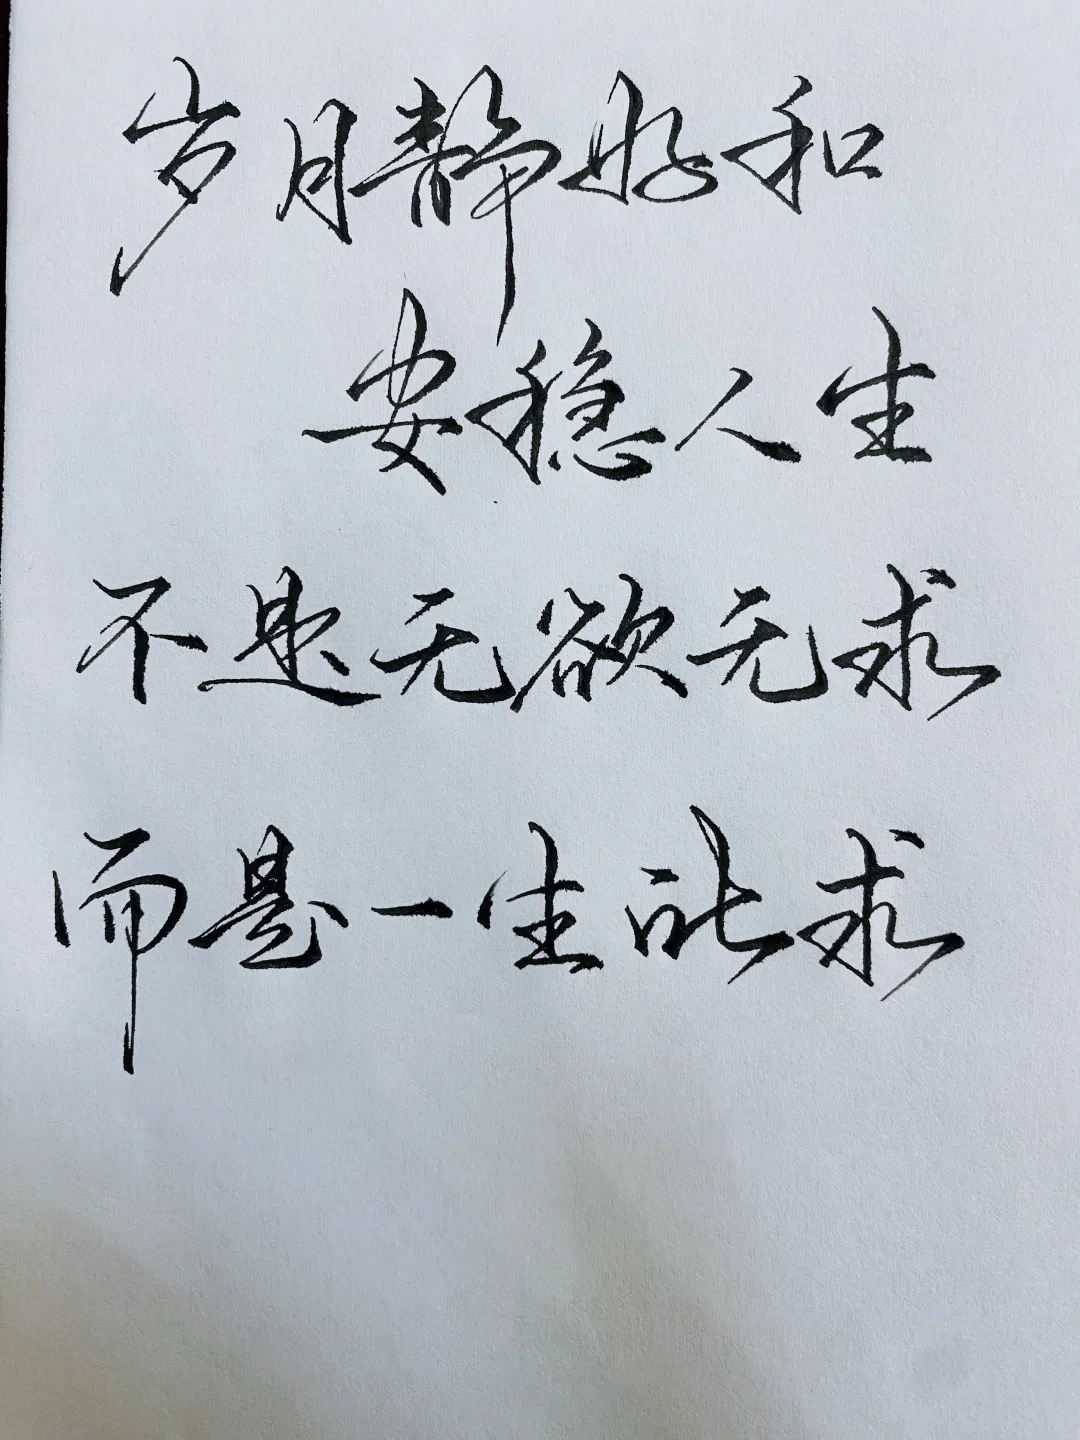 岁月静好和
安稳人生
不是无欲无求
而是一生所求